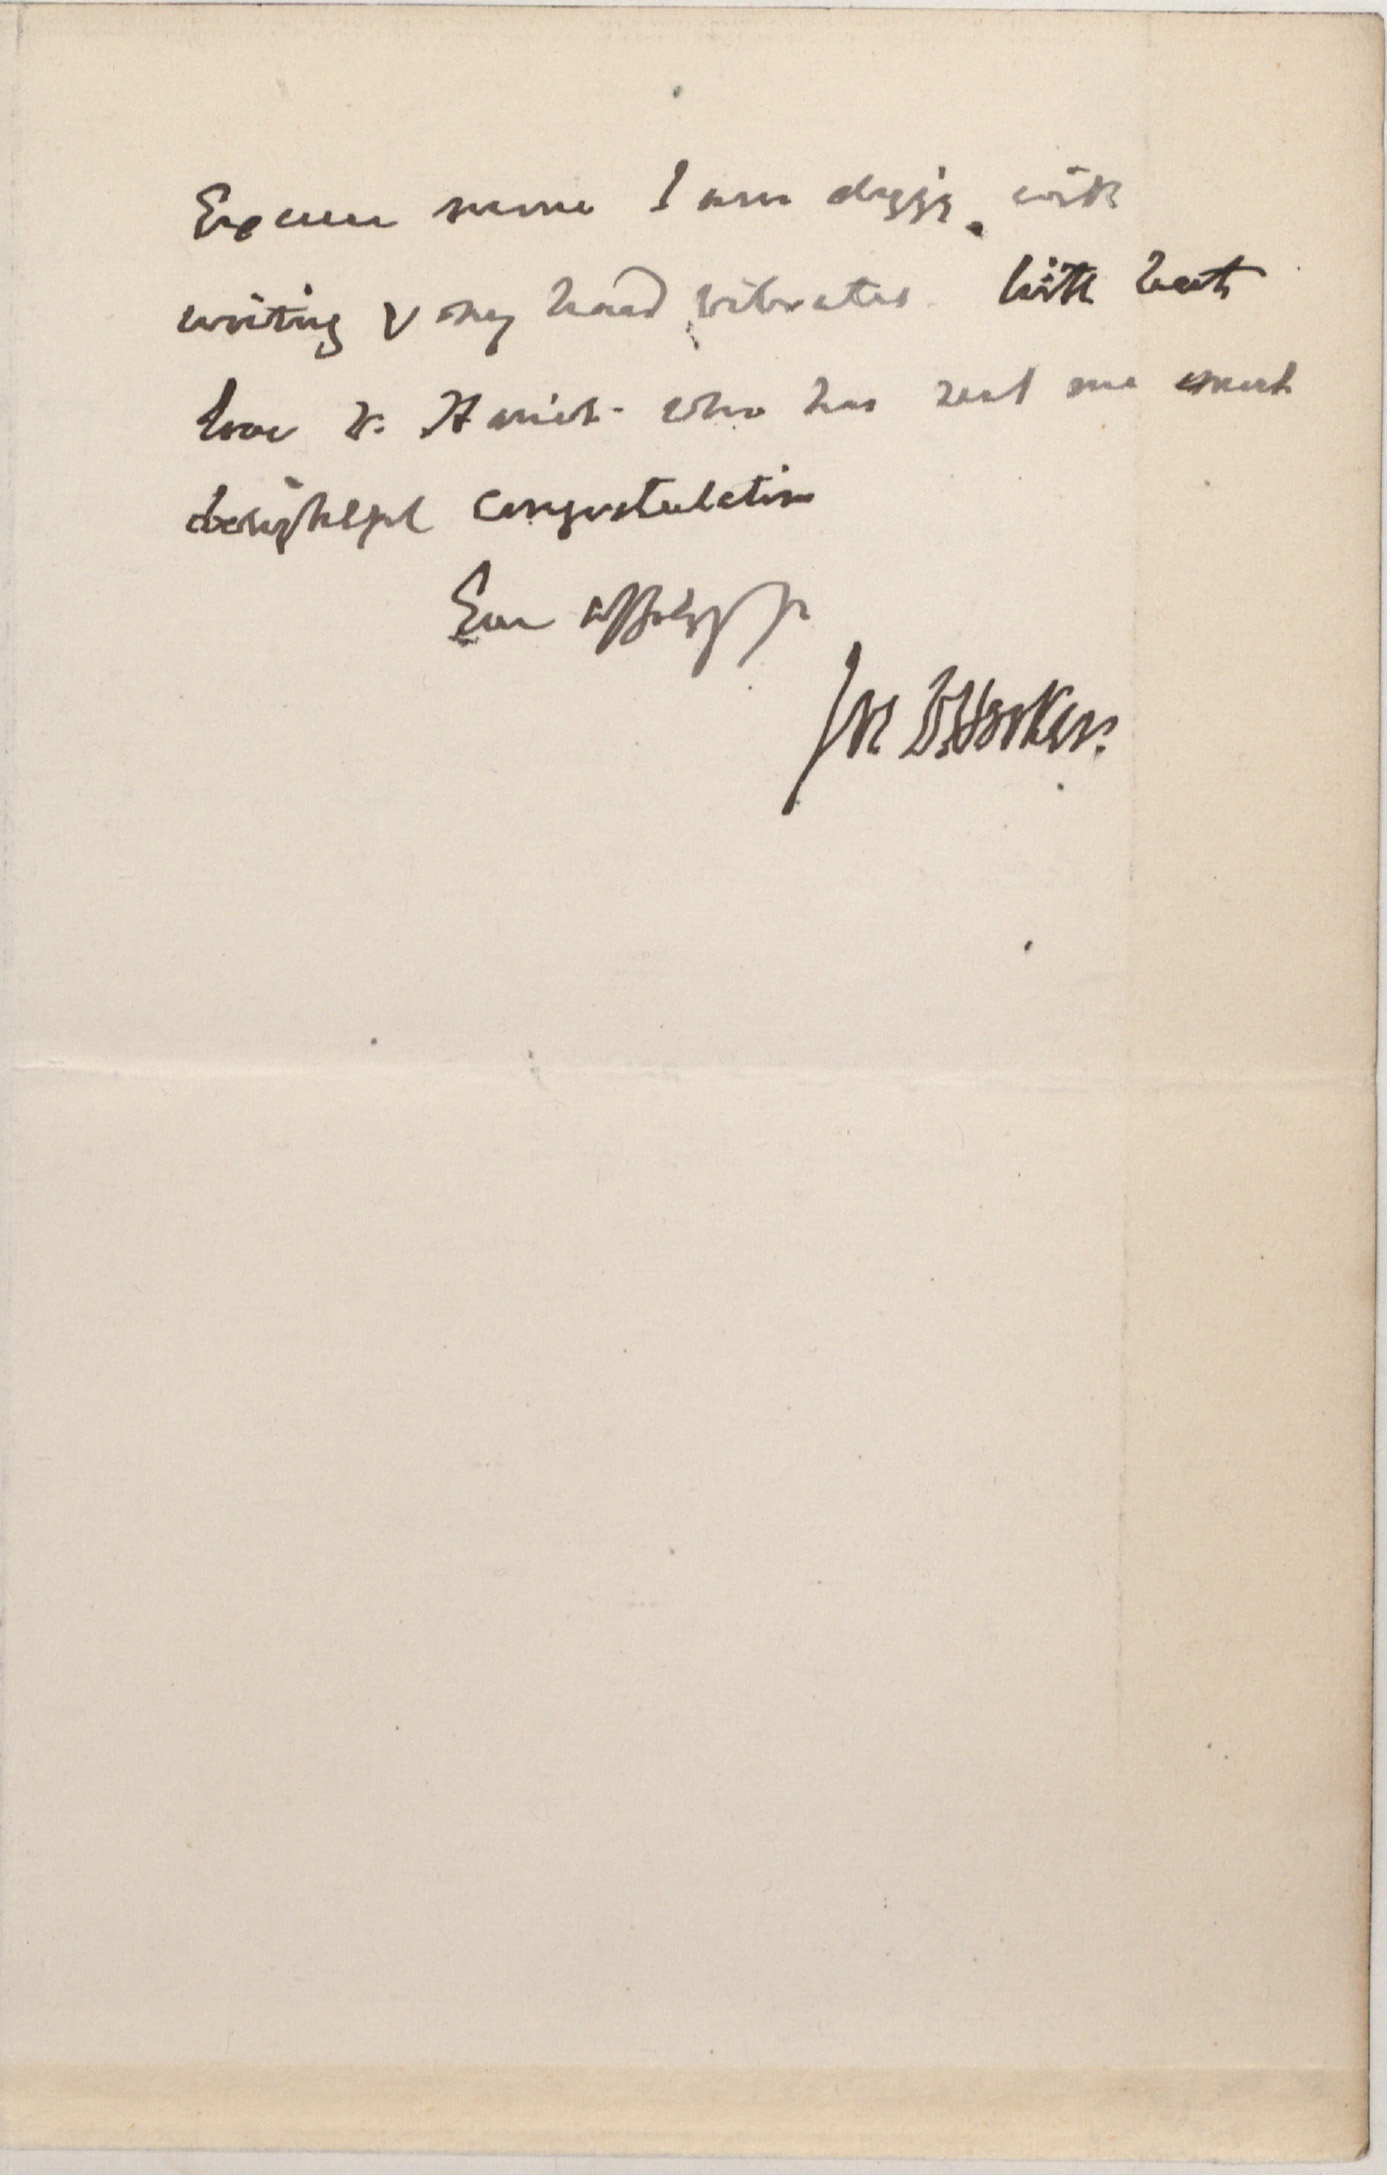 Excuse more I am dizzy with
writing & my hand vibrates With best
love to Harriet who has sent me most
delightful congratulation
Ever affly yr
Jos D Hooker.